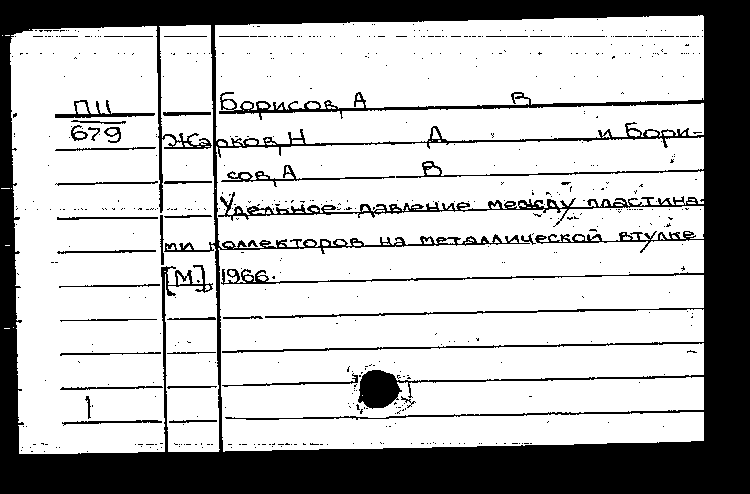 П11 Борисов, А В
679 Жарков, Н Д и Бори-
сов, А В
Удельное давление между пластина-
ми коллекторов на металлической втулке.
[М.], 1966.
1